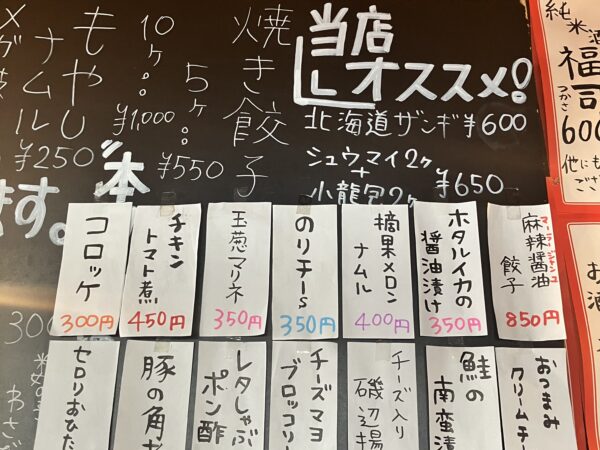 当店
オススメ!
北海道ザンギ ¥600
シュウマイ2ヶ
+
小龍包2ヶ ¥650
焼き餃子
5ヶ
¥550
10ヶ
¥1,000
もやし
ナムル
¥250
本
ます。
純米酒
福司
つかさ
600
他にも
麻辣醤油
マーラージャンユ
餃子
850円
ホタルイカの
醤油漬け
350円
摘果メロン
ナムル
400円
のりチーs
350円
玉葱マリネ
350円
チキン
トマト煮
450円
コロッケ
300円
おつまみ
クリームチー
鮭の
南蛮漬
チーズ入り
磯辺揚
チーズマヨ
ブロッコリー
レタしゃぶ
ポン酢
豚の角
セロリおひた
300